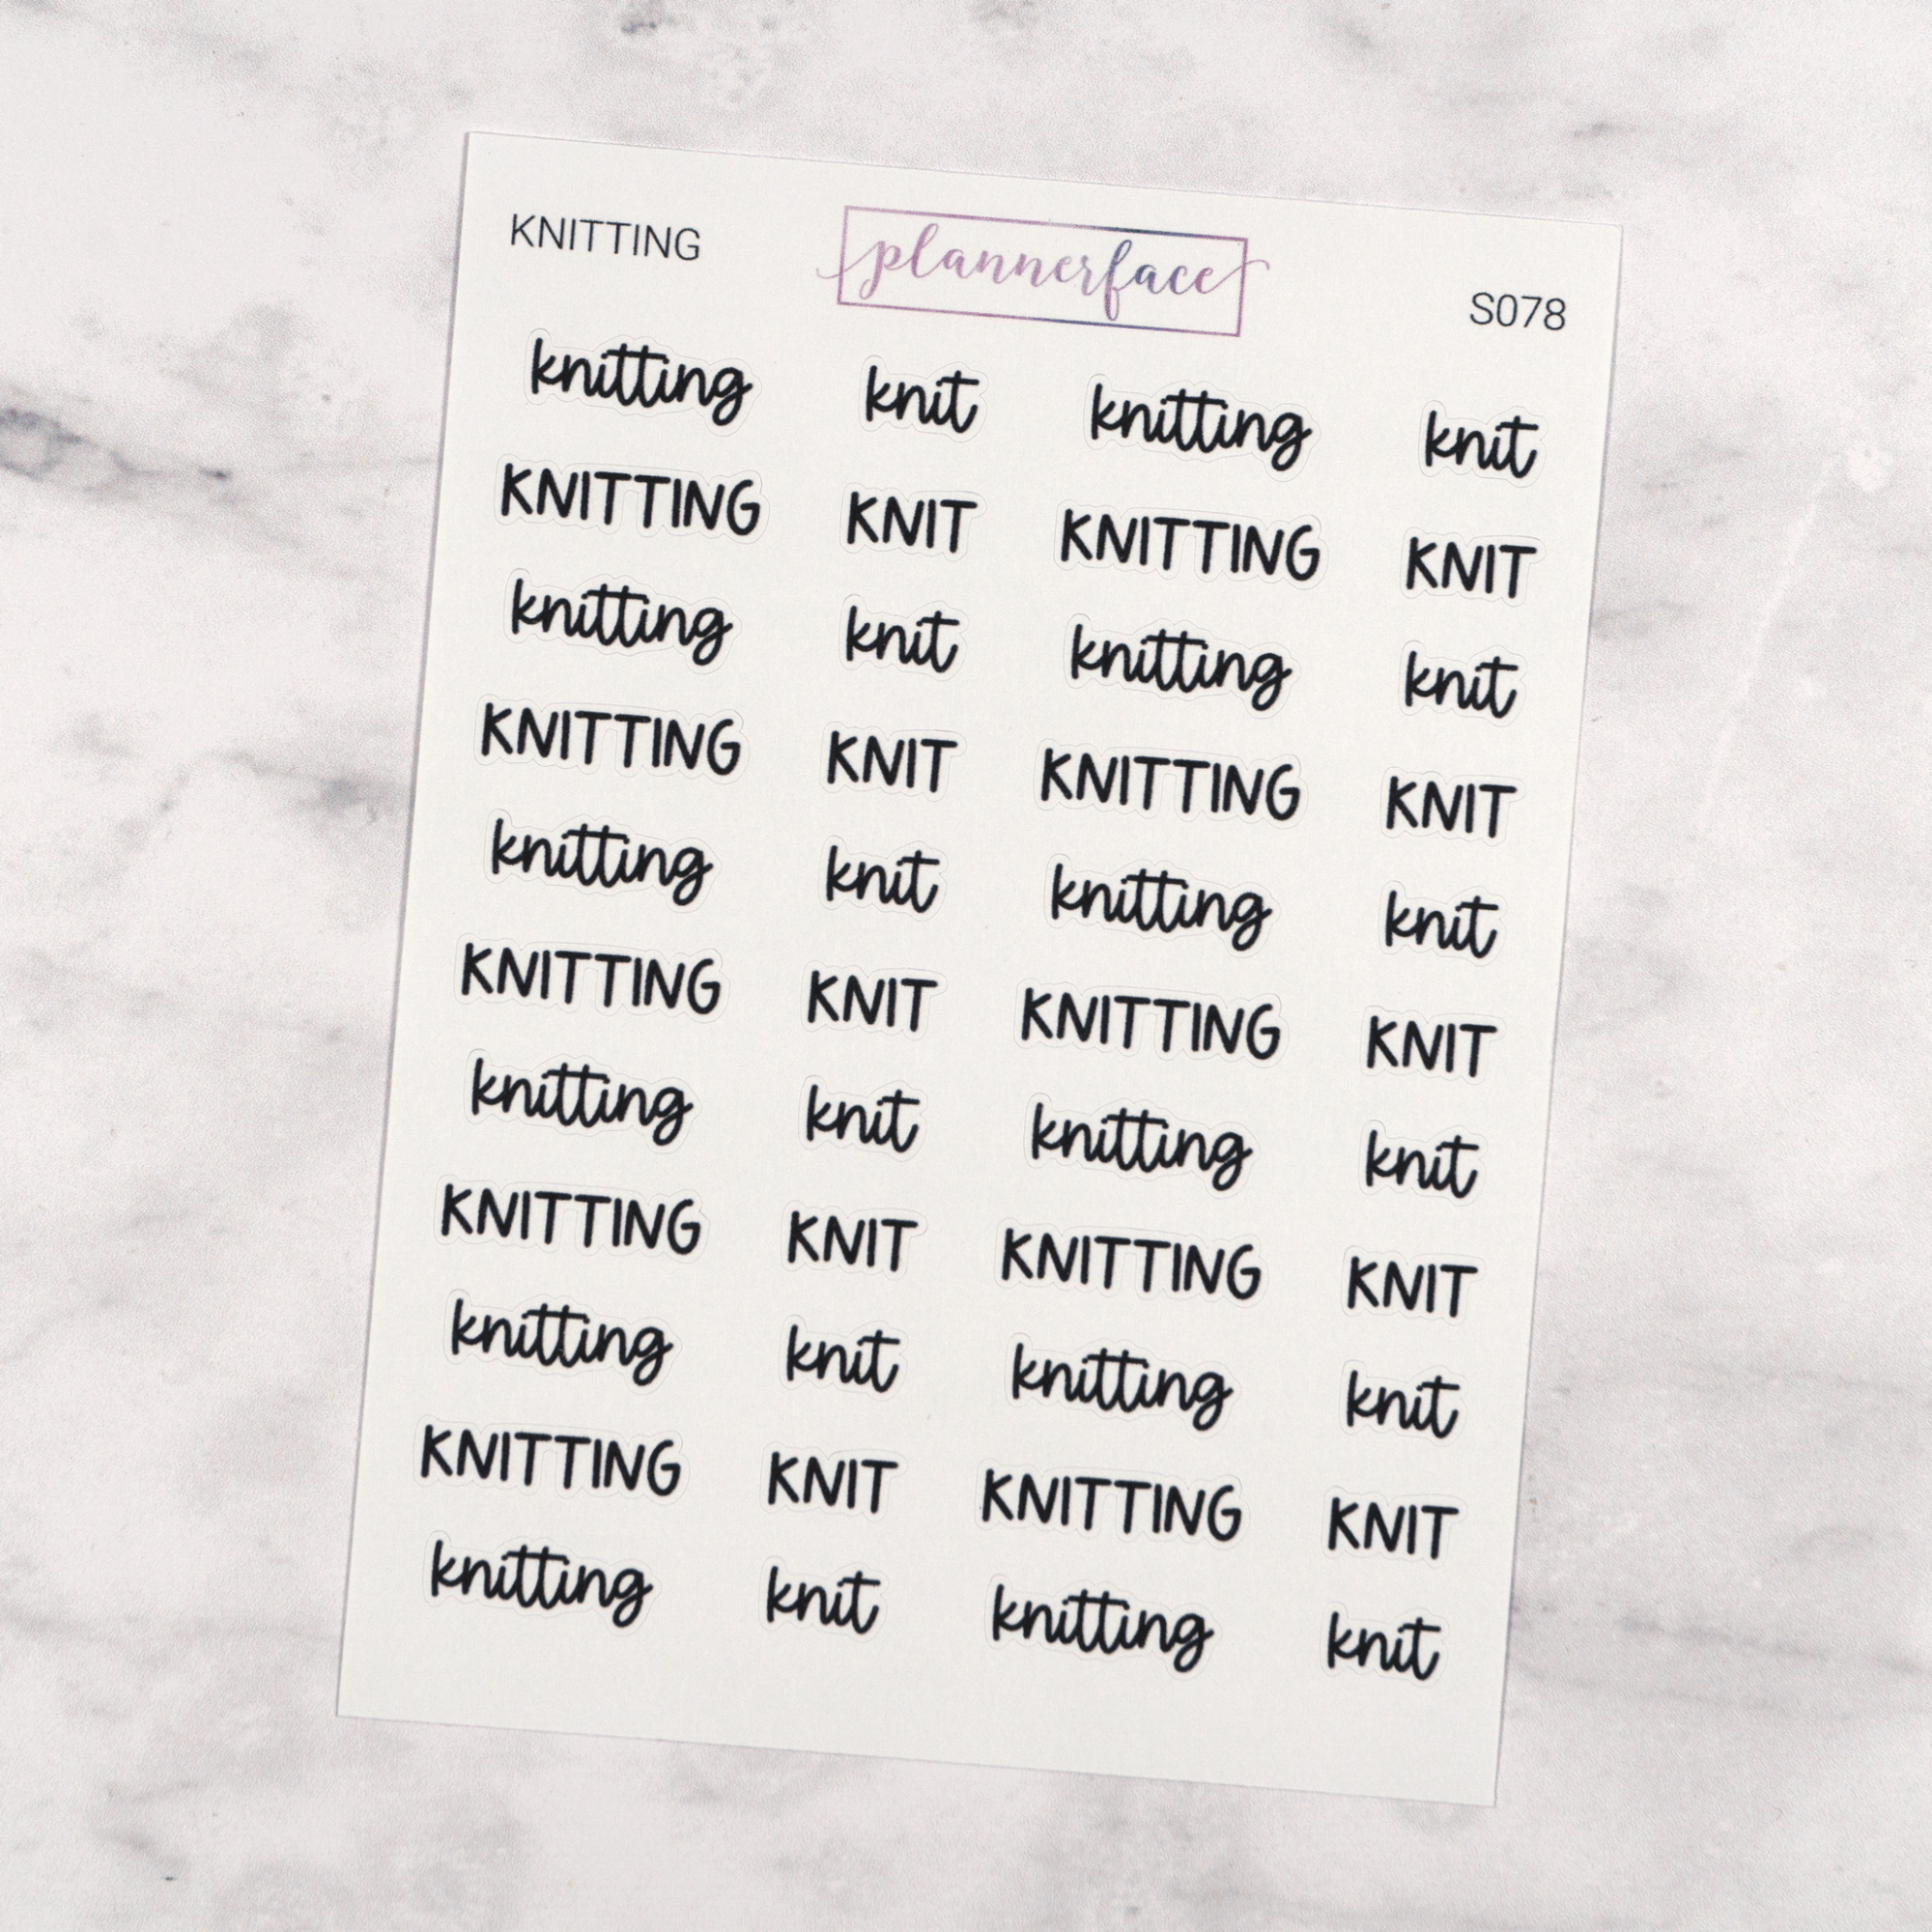 KNITTING plannerface S078
knitting knit knitting knit
KNITTING KNIT KNITTING KNIT
knitting knit knitting knit
KNITTING KNIT KNITTING KNIT
knitting knit knitting knit
KNITTING KNIT KNITTING KNIT
knitting knit knitting knit
KNITTING KNIT KNITTING KNIT
knitting knit knitting knit
KNITTING KNIT KNITTING KNIT
knitting knit knitting knit